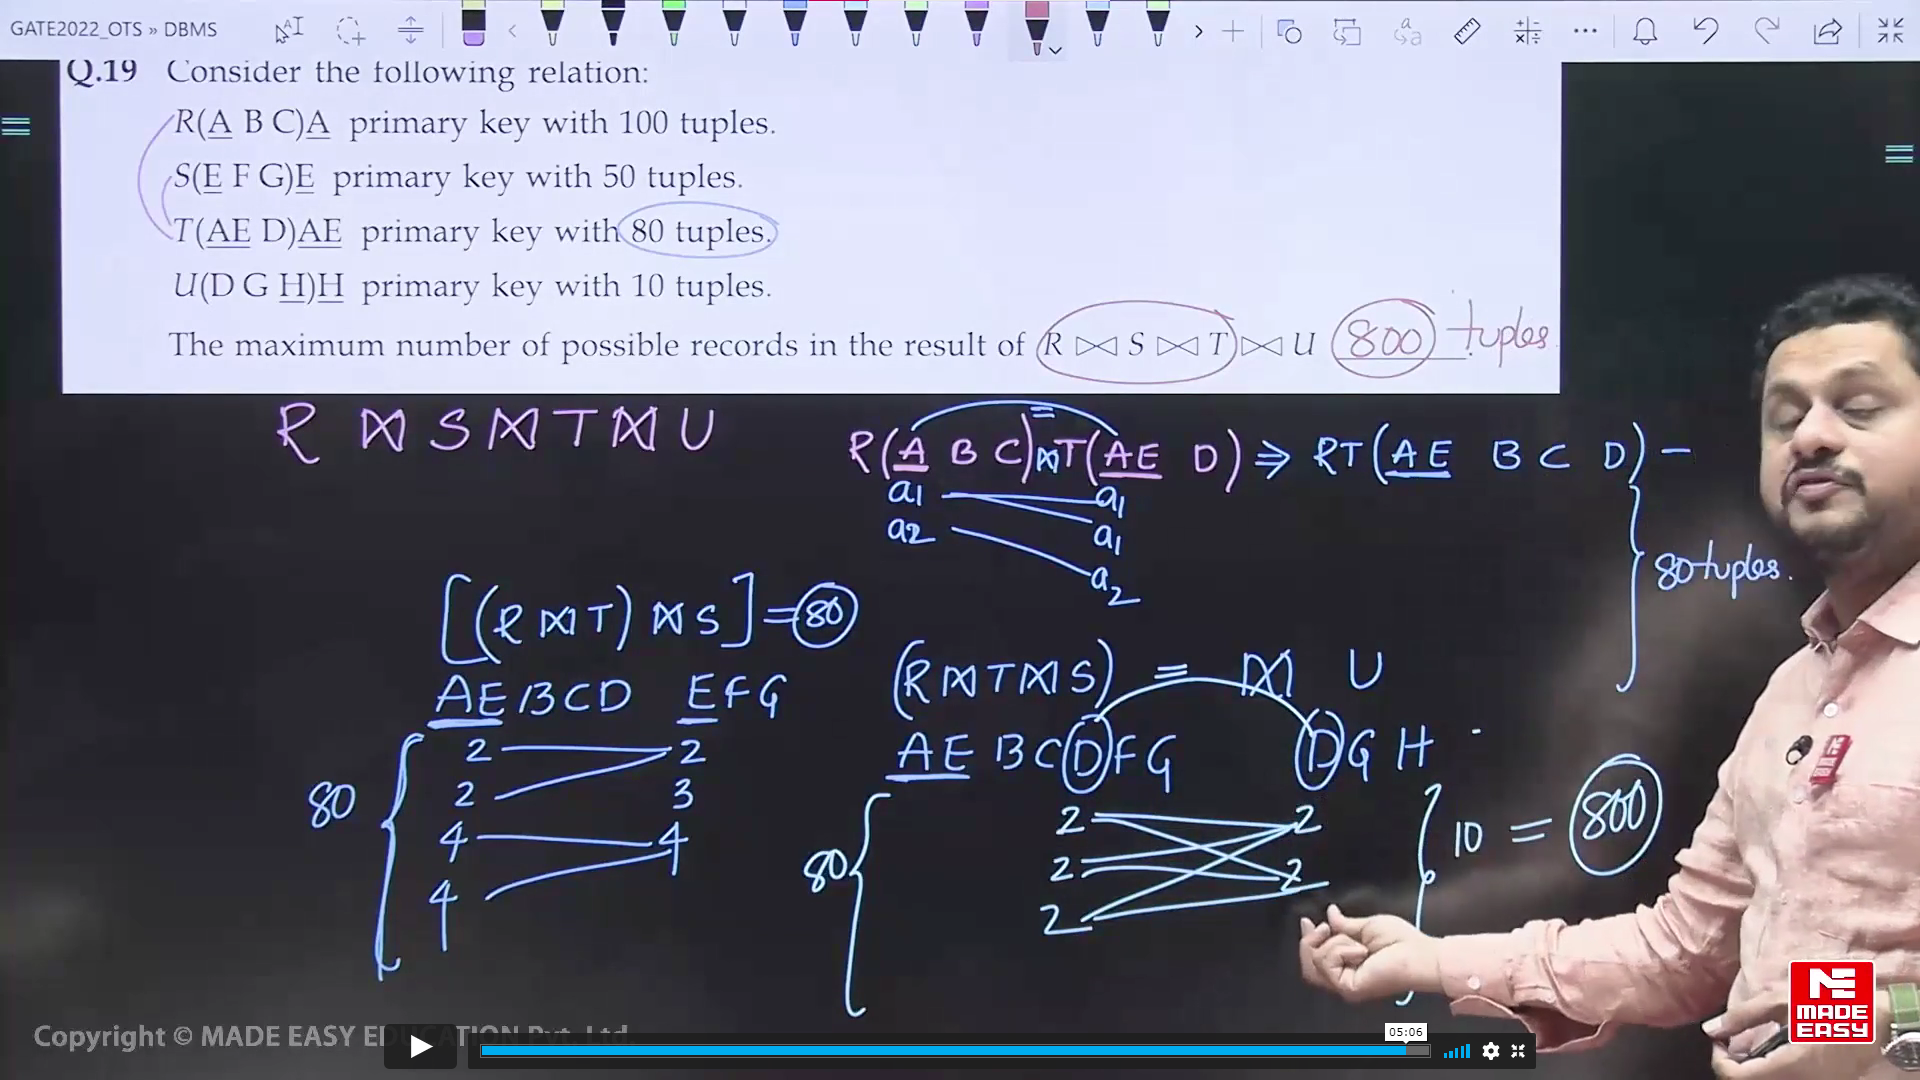 GATE2022_OTS » DBMS
Q.19 Consider the following relation:
R(A B C)A primary key with 100 tuples.
S(E F G)E primary key with 50 tuples.
T(AE D)AE primary key with 80 tuples.
U(D G H)H primary key with 10 tuples.
The maximum number of possible records in the result of R ⋈ S ⋈ T ⋈ U 800 tuples.
R ⋈ S ⋈ T ⋈ U
R(A B C) ⋈ T(AE D) ⇒ RT(AE B C D) -
=
a1 a1
a2 a1
a2
80 tuples.
[(R ⋈ T) ⋈ S] = 80
AE BCD EFG
2 2
2 3
4 4
4
80
(R ⋈ T ⋈ S) = ⋈ U
AE BCDFG DGH
2 2
2 2
2
80
10 = 800
Copyright © MADE EASY EDUCATION Pvt. Ltd.
05:06
MADE
EASY